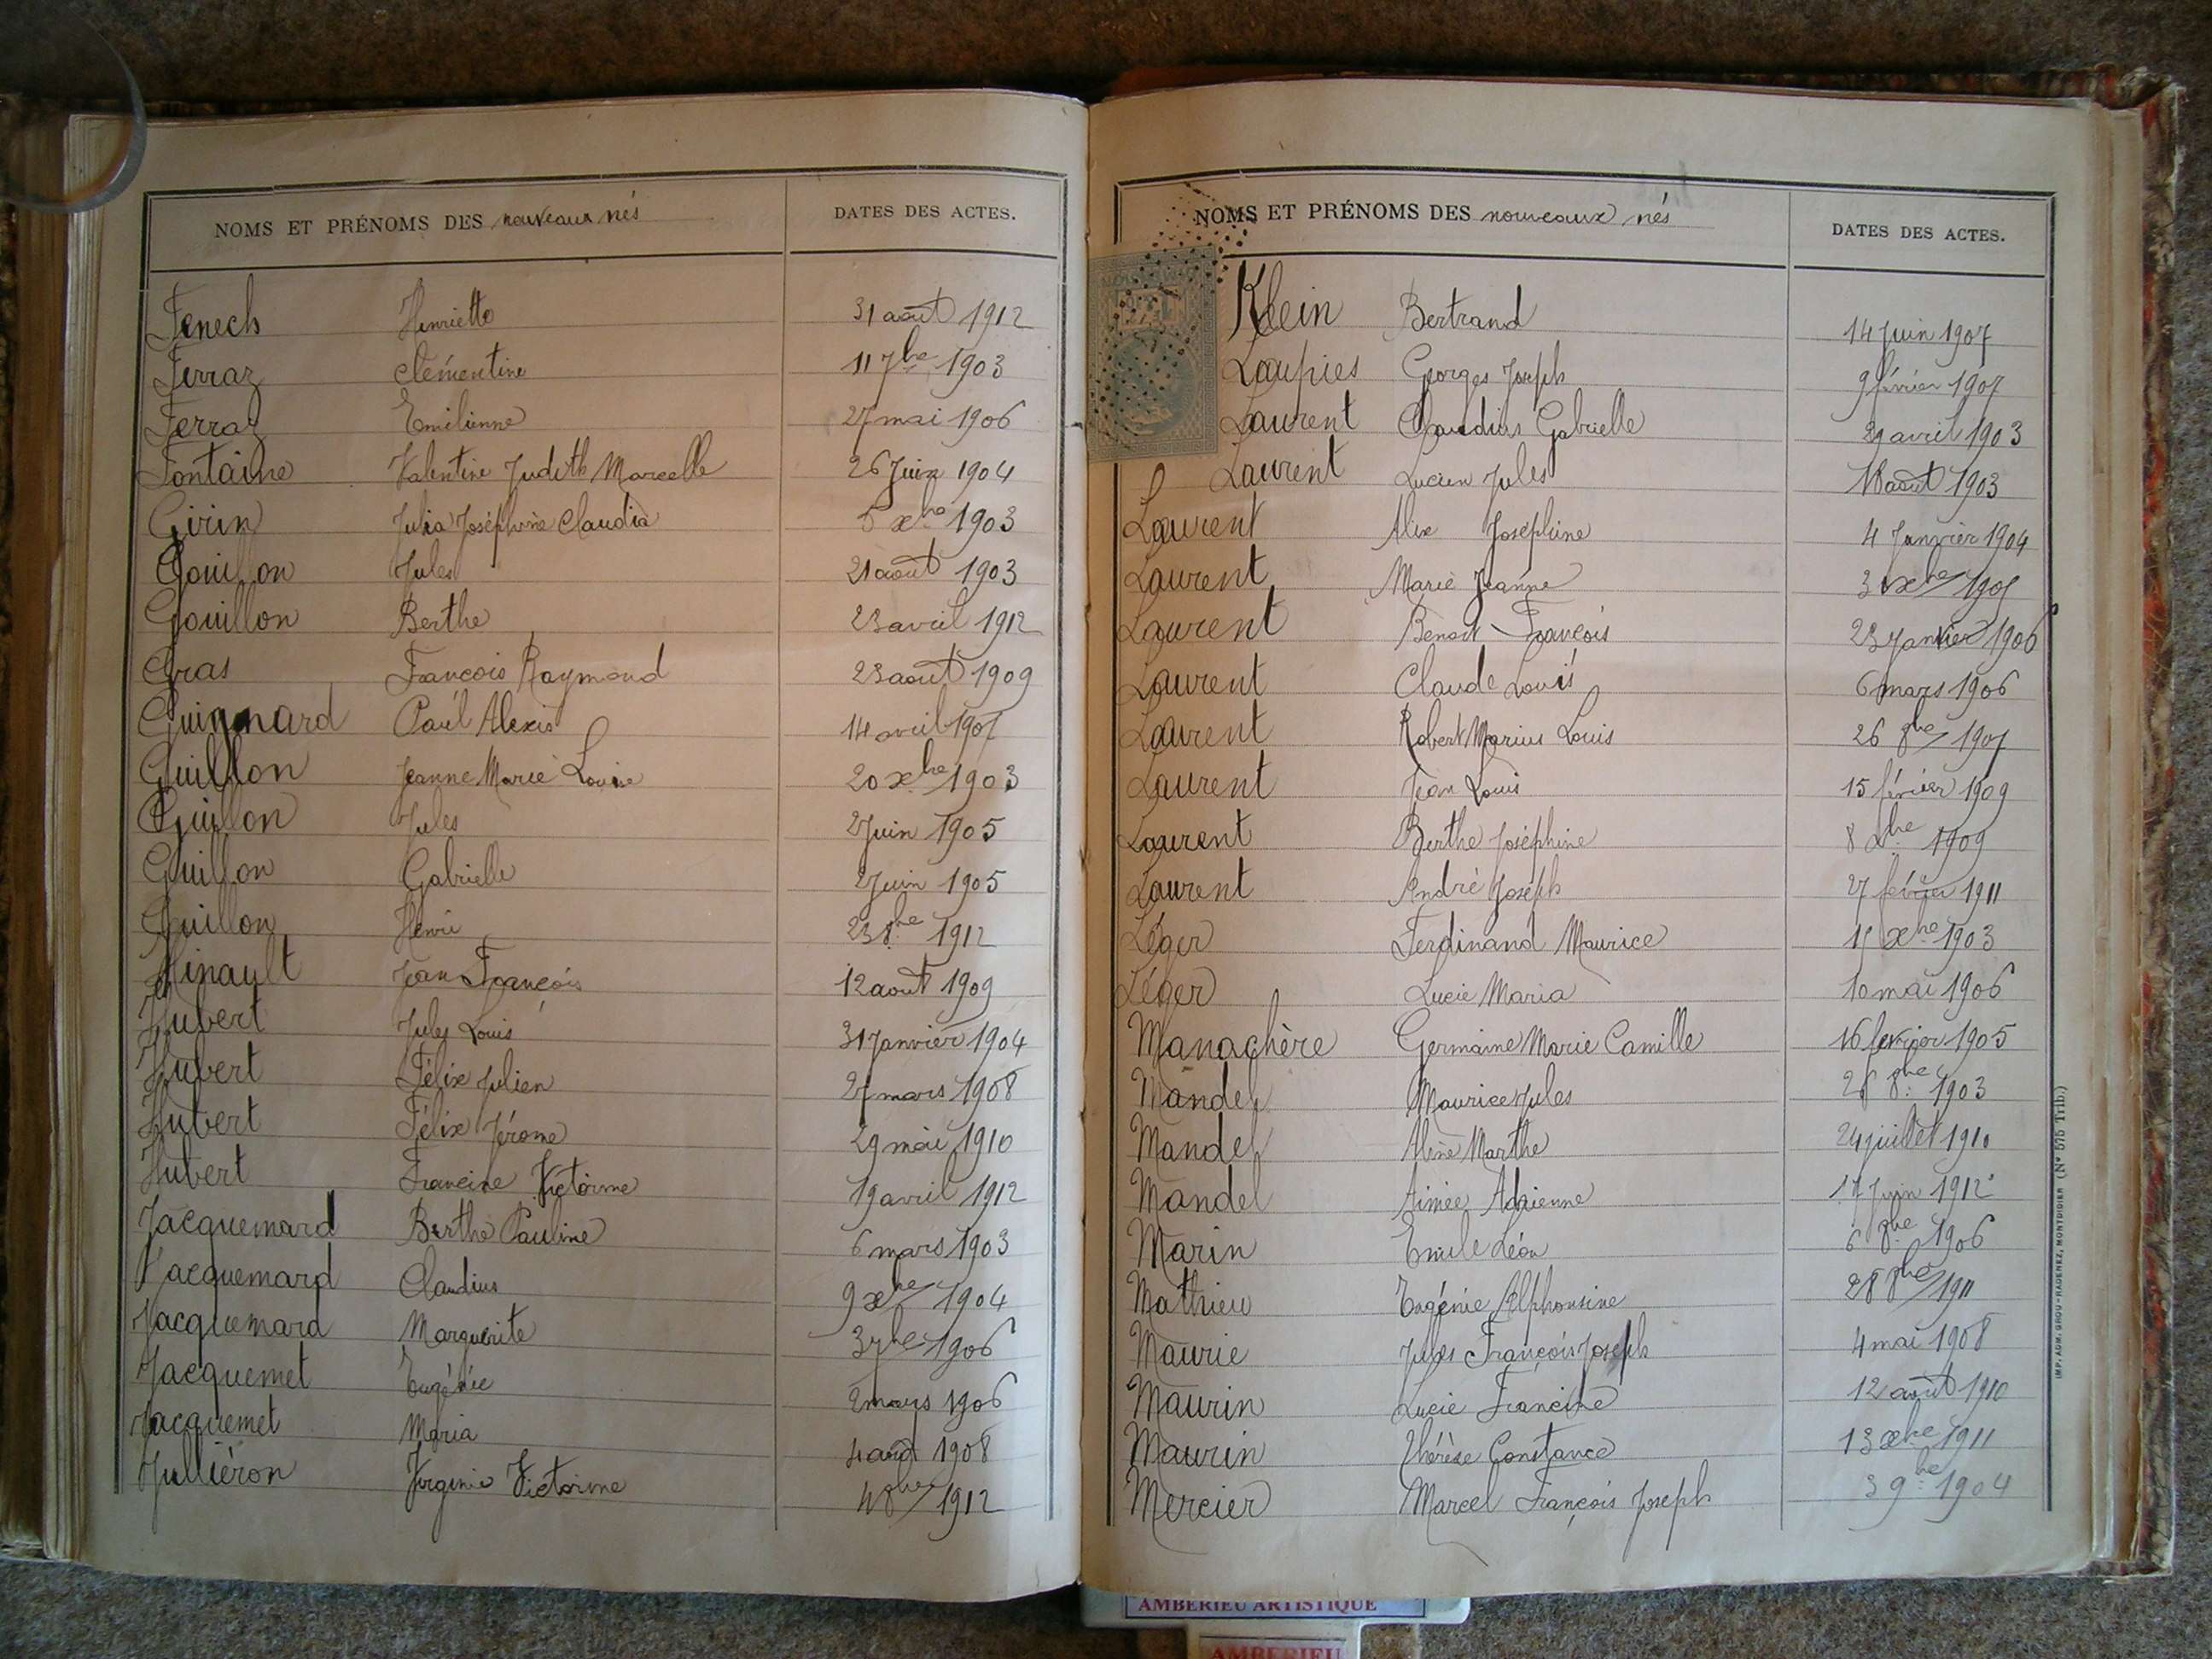 NOMS ET PRÉNOMS DES nouveaux nés DATES DES ACTES.
Fenech Henriette 31 août 1912
Ferraz Clémentine 11 7bre 1903
Ferraz Emilienne 27 mai 1906
Fontaine Valentine Judith Marcelle 26 Juin 1904
Girin Julia Joséphine Claudia xbre 1903
Gouillon Jules 21 août 1903
Gouillon Berthe 23 avril 1912
Gras François Raymond 23 août 1909
Guignard Paul Alexis 14 avril 1907
Guillon Jeanne Marie Louise 20 xbre 1903
Guillon Jules 2 Juin 1905
Guillon Gabrielle 2 Juin 1905
Guillon Henri 23 8bre 1912
Hinault Jean François 12 août 1909
Hubert Jules Louis 31 Janvier 1904
Hubert Félix Julien 27 mars 1908
Hubert Félix Jérome 29 mai 1910
Hubert Francine Victorine 19 avril 1912
Jacquemard Berthe Pauline 6 mars 1903
Jacquemard Claudius 9 xbre 1904
Jacquemard Marguerite 1906
Jacquemet Eugénie 2 mars 1906
Jacquemet Maria 4 août 1908
Julliéron Virginie Victorine 4 8bre 1912
NOMS ET PRÉNOMS DES nouveaux nés DATES DES ACTES.
Klein Bertrand 14 Juin 1907
Laupies Georges Joseph 9 février 1907
Laurent Claudius Gabrielle 29 avril 1903
Laurent Lucien Jules 18 août 1903
Laurent Alix Joséphine 4 Janvier 1904
Laurent Marie Jeanne xbre 1905
Laurent Benoit François 23 Janvier 1906
Laurent Claude Louis 6 mars 1906
Laurent Robert Marius Louis 26 8bre 1907
Laurent Jean Louis 15 février 1909
Laurent Berthe Joséphine 8 xbre 1909
Laurent André Joseph 27 février 1911
Léger Ferdinand Maurice 15 xbre 1903
Léger Lucie Maria 10 mai 1906
Manachère Germaine Marie Camille 16 février 1905
Mandel Maurice Jules 26 8bre 1903
Mandel Aline Marthe 24 juillet 1910
Mandel Aimée Adrienne 17 Juin 1912
Marin Emile Léon 6 8bre 1906
Mathieu Eugénie Alphonsine 28 8bre 1911
Maurie Jules François Joseph 4 mai 1908
Maurin Lucie Francine 12 août 1910
Maurin Thérèse Constance 13 xbre 1911
Mercier Marcel François Joseph 3 9bre 1904
IMP. ADM. GROU-RADENEZ, MONTDIDIER (N° 575 Trib.)
AMBERIEU ARTISTIQUE
AMBERIEU